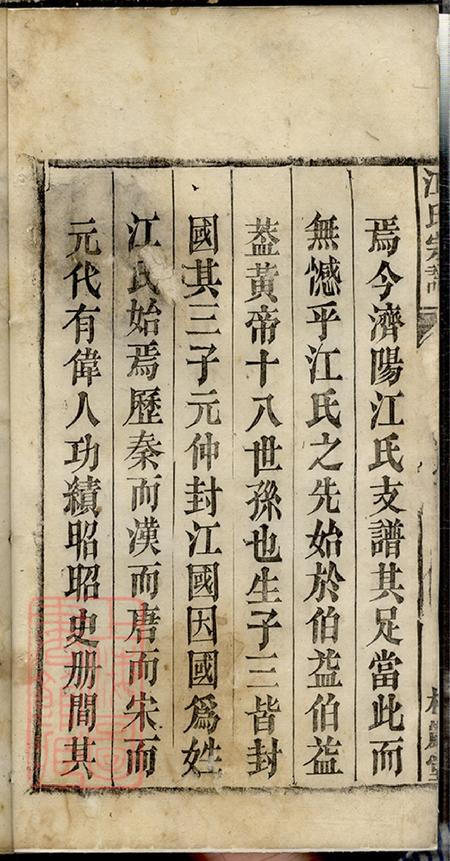 江氏宗譜
焉今濟陽江氏支譜其足當此而
無憾乎江氏之先始於伯益伯益
葢黃帝十八世孫也生子三皆封
國其三子元仲封江國因國爲姓
江氏始焉歷秦而漢而唐而宋而
元代有偉人功績昭昭史册間其